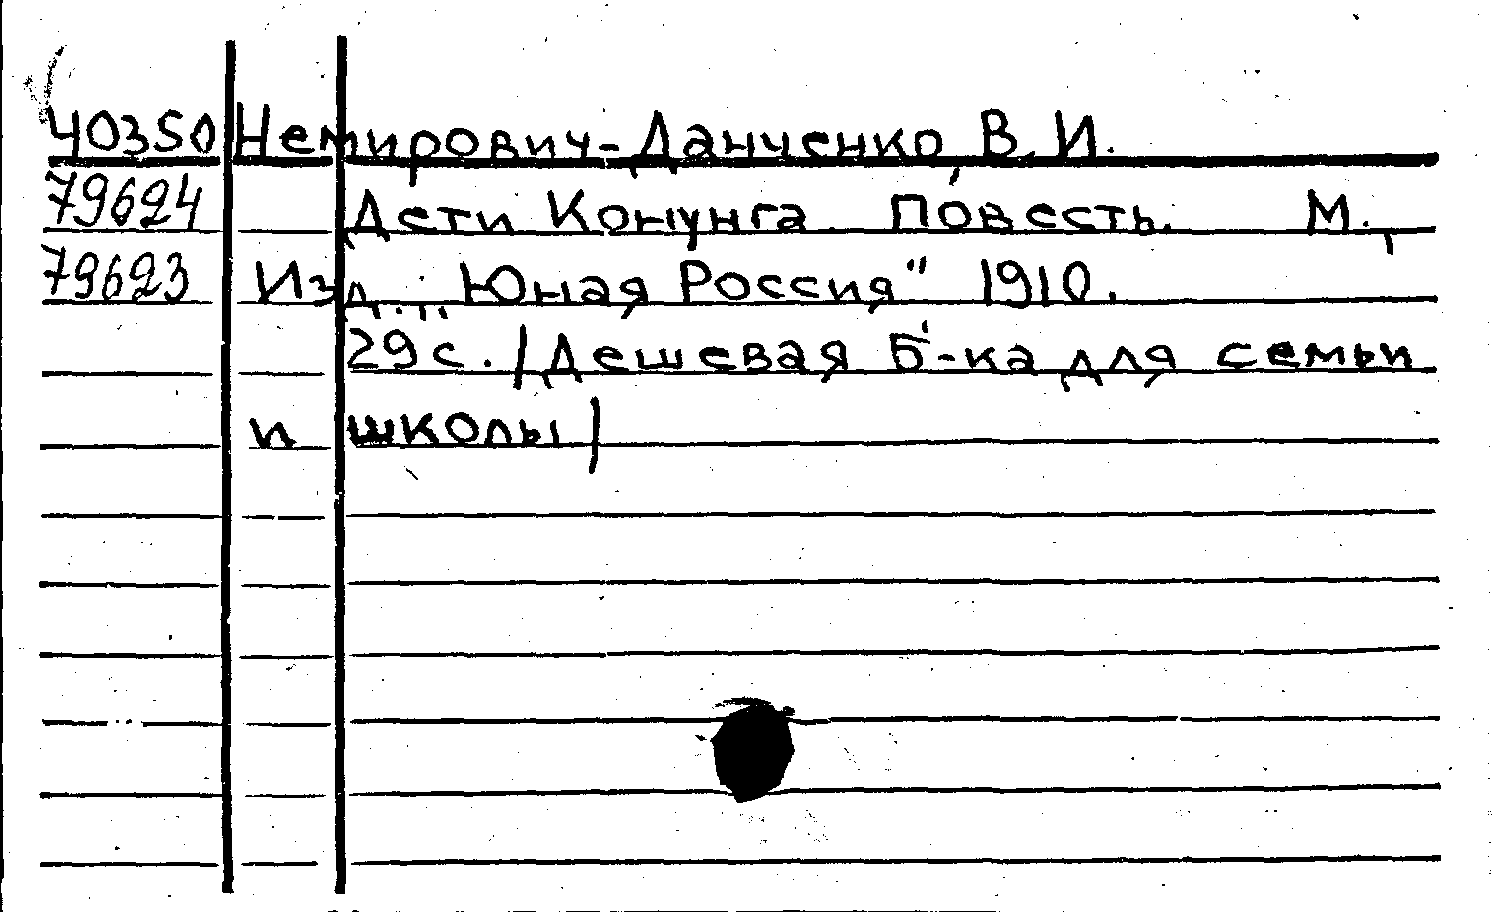 40350 Немирович-Данченко, В. И.
79624 Дети Конунга. Повесть. М.,
79623 Изд. „Юная Россия" 1910.
29 с. /Дешевая Б-ка для семьи
и школы/